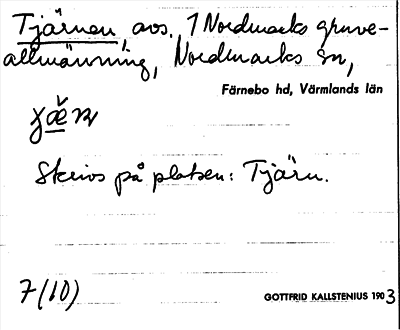 Tjärnen, avs. 1 Nordmarks gruve-
allmänning, Nordmarks sn,
Färnebo hd, Värmlands län
Skrivs på platsen: Tjärn.
7(10)
GOTTFRID KALLSTENIUS 1903